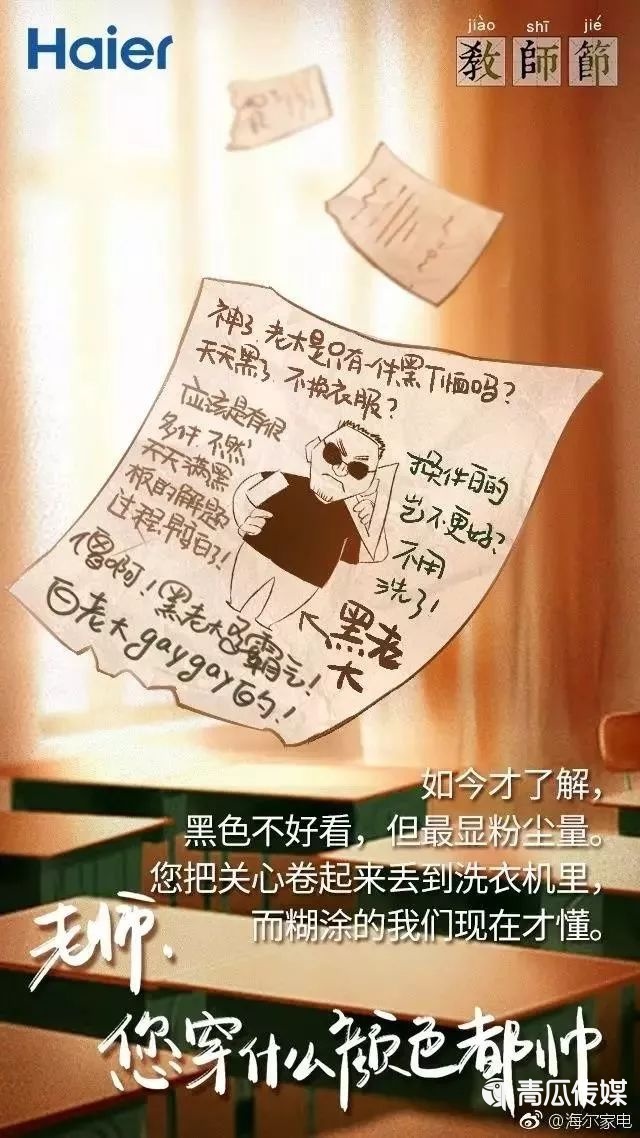 Haier
jiào shī jié
教師節
神了,老大是只有一件黑T恤吗?
天天黑了,不换衣服?
应该是有很
多件 不然
天天满黑
板的解题
过程早白了!
换件白的
岂不更好?
不用
洗了!
傻啊!黑老大多霸气!
白老大gaygay的!
黑老
大
如今才了解,
黑色不好看,但最显粉尘量。
您把关心卷起来丢到洗衣机里,
而糊涂的我们现在才懂。
老师、
您穿什么颜色都帅
青瓜传媒
@海尔家电